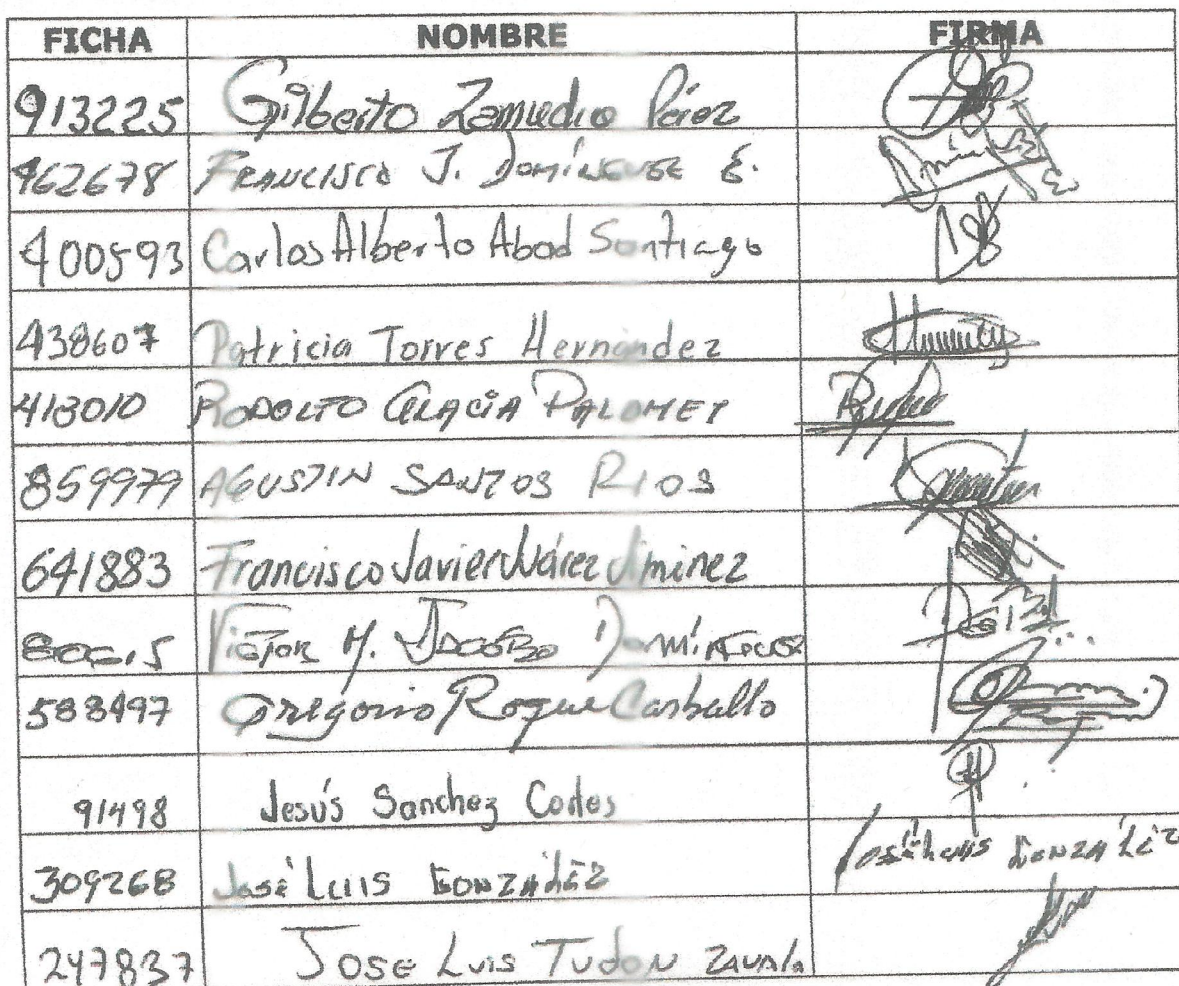 FICHA NOMBRE FIRMA
913225 Gilberto Zamudio Pérez
962678 FRANCISCO J. DOMÍNGUEZ E.
400593 Carlos Alberto Abad Santiago
438607 Patricia Torres Hernández
413010 RODOLFO GRACIA PALOMEY
859979 AGUSTIN SANTOS RIOS
641883 Francisco Javier Juárez Jiminez
VICTOR M. JACOBO DOMÍNGUEZ
583497 Gregorio Roque Carballo
91498 Jesús Sanchez Cortes
309268 José LUIS GONZÁLEZ José Luis GONZÁLEZ
247837 JOSE LUIS TUDON ZAVALA